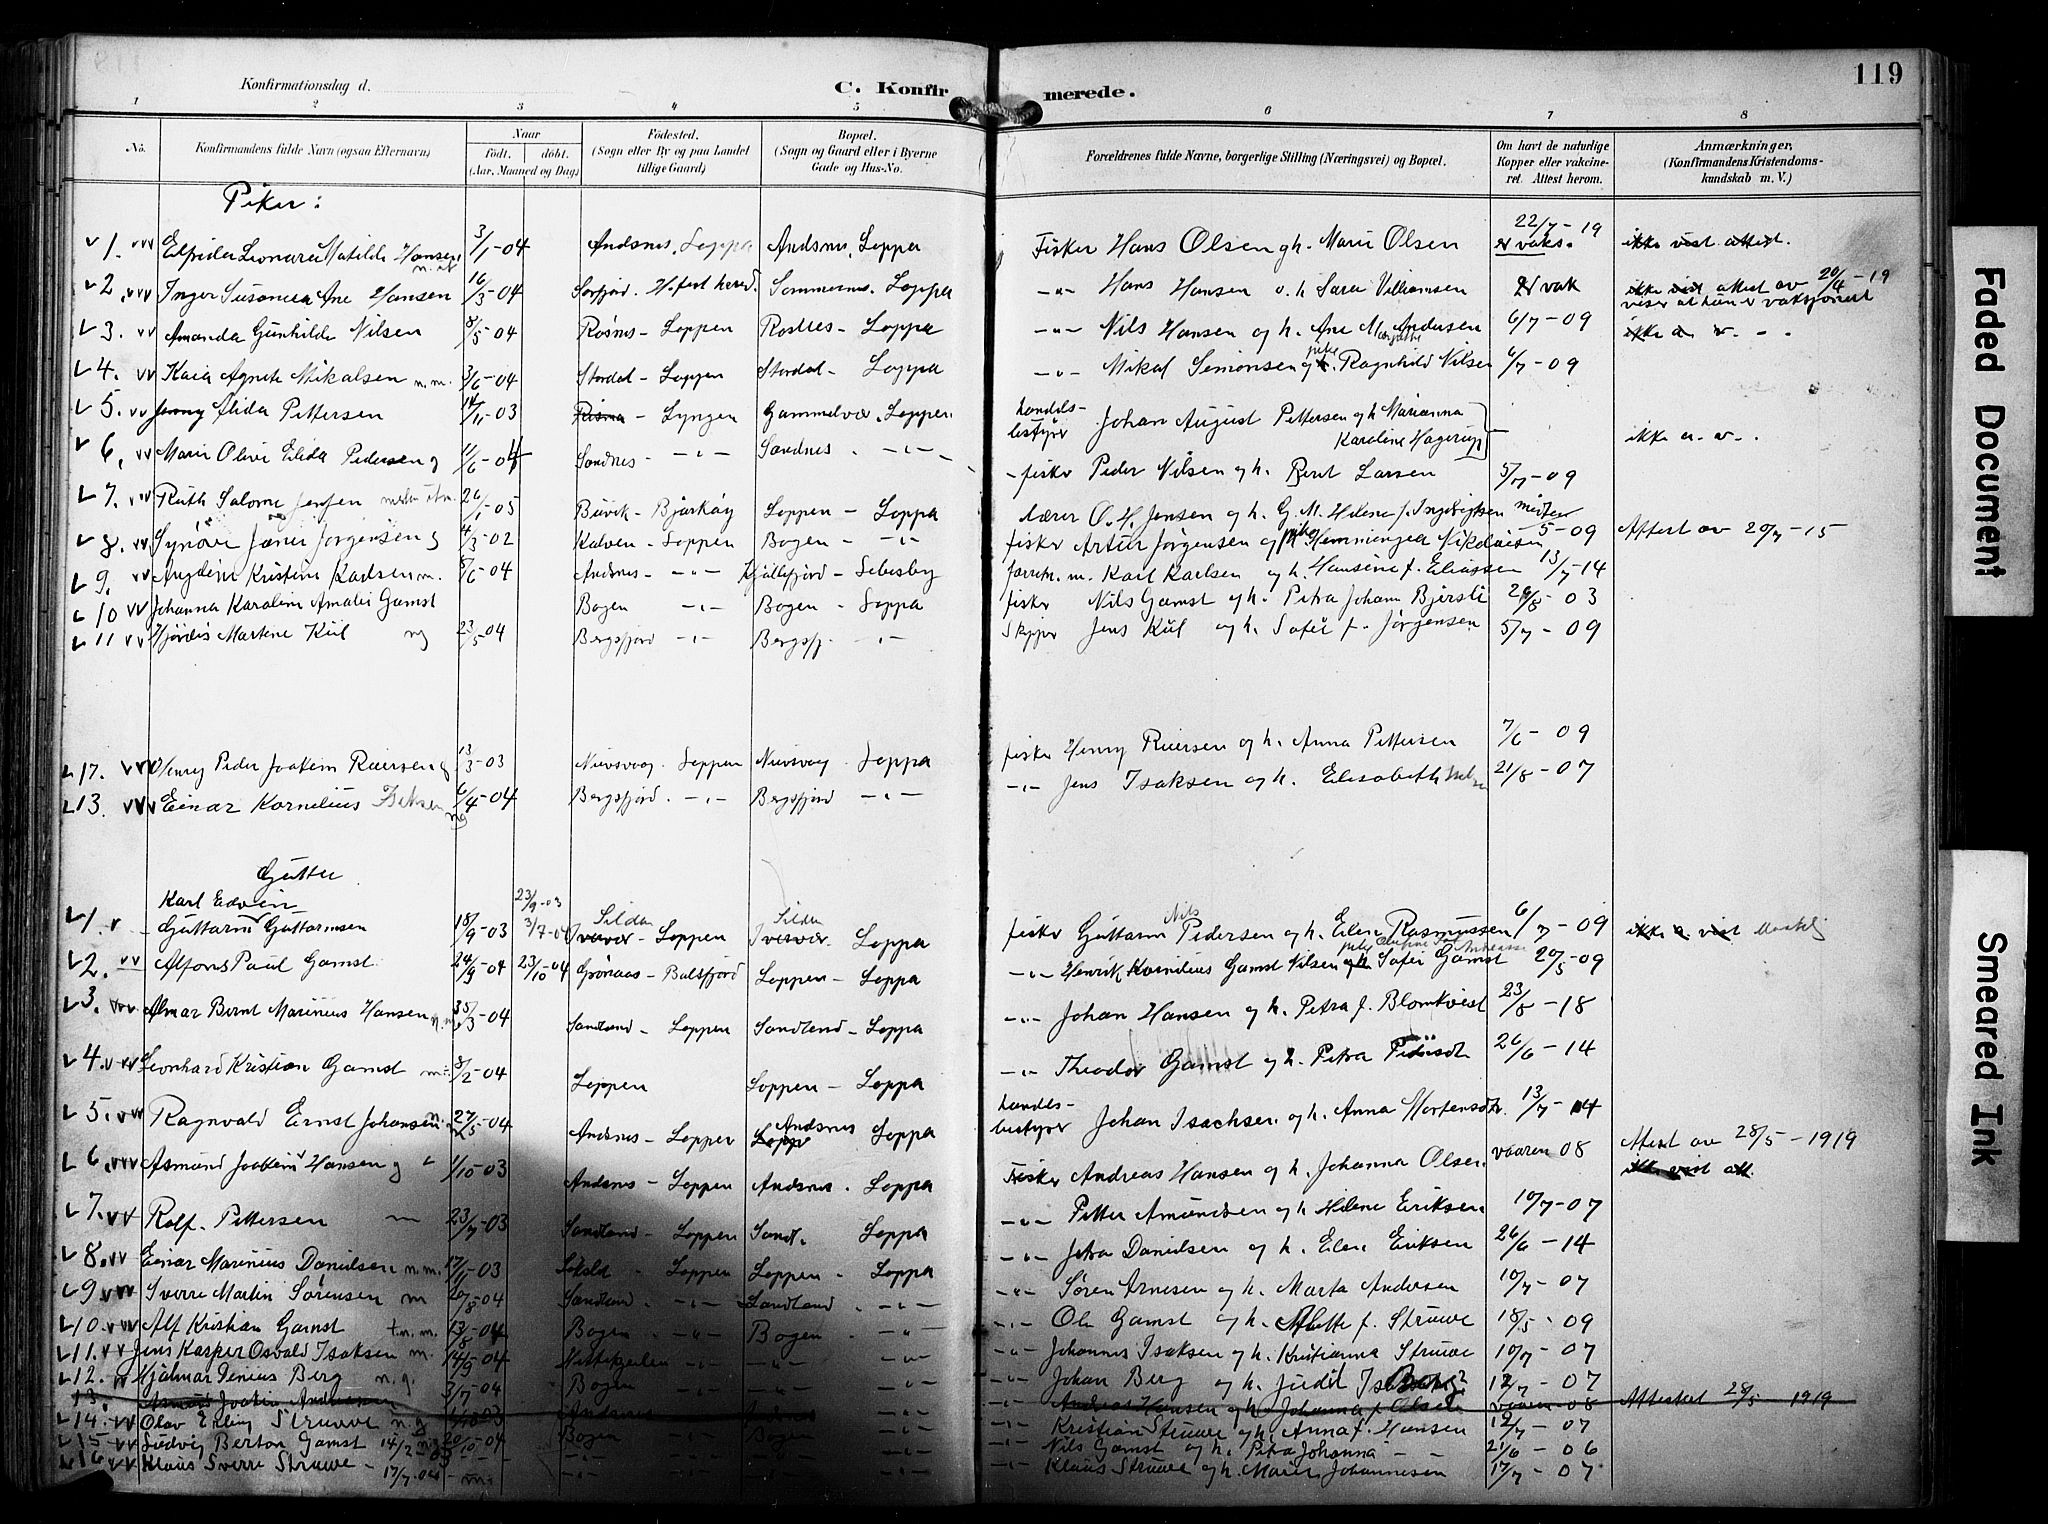 119
Konfirmationsdag d.
C. Konfirmerede.
1 2 3 4 5 6 7 8
No. Konfirmandens fulde Navn (ogsaa Efternavn) Naar født. døbt. (Aar, Maaned og Dag) Födested. (Sogn eller By og paa Landet tillige Gaard) Bopæl. (Sogn og Gaard eller i Byerne Gade og Hus-No. Forældrenes fulde Navne, borgerlige Stilling (Næringsvei) og Bopæl. Om havt de naturlige Kopper eller vakcineret. Attest herom. Anmærkninger, (Konfirmandens Kristendomskundskab m. V.)
Piker:
1. Elfrida Leonara Matilde Hansen 3/1-04 Andsnes, Loppa Andsnes, Loppa Fisker Hans Olsen g h. Marie Olsen 22/7-19 er vaks. ikke vist attest.
2. Inger Susanna Ane Hansen 16/3-04 Sørfjord. Sommernes. Loppa -"- Hans Hansen o. h Sara Vilhamsen er vak ikke vist attest av 20/4-19 viser at hun er vaksineret
3. Amanda Gunhilde Nilsen 8/5-04 Rosnes- Loppen Rosnes- Loppa -"- Nils Hansen og h. Ane Margrethe Andersen 6/7-09
4. Kaia Agnete Mikalsen n.m. 3/6-04 Stordal- Loppen Stordal- Loppa -"- Mikal Simonsen og pike Ragnhild Nilsen 6/7-09
5. Jenny Alida Pettersen 14/11-03 - Lyngen Gammelvær. Loppen. handelsbestyrer Johan August Pettersen og h Marianna Karoline Hagerup
6. Marie Olive Elida Pedersen g 11/6-04 Sandnes- -"- Sandnes -"- fisker Peder Nilsen og h. Berit Larsen 5/7-09 ikke a. v.
7. Ruth Salome Jensen 26/1-05 Buvik- Bjarkøy Loppen- Loppa lærer O. H. Jensen og h. G. M. Helene f. Ingebrigtsen
8. Synøve Janie Jørgensen g 4/3-02 Kalven- Loppen Bogen- -"- fisker Artur Jørgensen og pike Hemmingea Nikolaisen 5-09 Attest av 20/7-15
9. Angdine Kristine Karlsen m. 8/6-04 Andsnes- -"- Kjøllefjord- Lebesby forretn. m. Karl Karlsen og h. Hansine f. Eliassen 13/7-14
10 Johanna Karoline Amalie Gamst Bogen -"- Bogen- Loppa fisker Nils Gamst og h. Petra Johana Bjersli 26/8-03
11 Hjørdis Martene Kiil ng 23/5-04 Bergsfjord -"- Bergsfj. -"- Skipper Jens Kiil og h. Sofie f. Jørgensen 5/7-09
17. Henry Peder Joakim Reiersen g 13/3-03 Nuvsvaag. Loppen Nuvsvag. Loppa fisker Henry Reiersen og h. Anna Pettersen 7/6-09
13. Einar Kornelius 6/4-04 Bergsfjord. -"- Bergsfjord -"- -"- Jens Isaksen og h. Elisabeth 21/8-07
Gutter
1. Karl Edvin Guttarm Guttormsen 18/9-03 23/9-03 3/7-04 Silda - Loppen Silda Loppa fisker Guttarm Nils Pedersen og h. Elen Rasmussen 6/7-09 ikke a vist
2. Alfons Paul Gamst 24/9-04 23/10-04 Grønaas- Balsfjord Loppen- Loppa -"- Henrik Kornelius Gamst Nilsen og Sofie Gamst 20/5-09
3. Almar Bernt Marinius Hansen /3-04 Sandland- Loppen Sandland- Loppa -"- Johan Hansen og h. Petra f. Blomkvist 23/8-18
4. Leonhard Kristian Gamst m. 8/2-04 Loppen Loppen- Loppa -"- Theodor Gamst og h. Petra 26/6-14
5. Ragnvald Ernst Johansen 27/5-04 Andsnes- Loppen Andsnes Loppa handelsbestyrer Johan Isachsen og h. Anna Mortensdtr. 13/7-14
6. Asmund Joakim Hansen g 1/10-03 Andsnes- Loppen Andsnes. Loppa Fisker Andreas Hansen og h. Johanna Olsen. vaaren 08 Attest av 28/5-1919 ikke vist att.
7. Rolf. Pettersen m 23/7-03 Sandland- Loppen Sandl. Loppa -"- Petter Amundsen og h Helene Eriksen 10/7-07
8. Einar Marinius Danielsen n.m. 17/11-03 - Loppen Loppen- Loppa -"- Danielsen og h. Elen Eriksen 26/6-14
9. Sverre Martin Sørensen m 20/8-04 Sandland. -"- Sandland. -"- -"- Søren Arnesen og h. Marta Andersen 10/7-07
10. Alf Kristian Gamst t.m.m. 13/8-04 Bogen. -"- Bogen. -"- -"- Ole Gamst og h. Mette f. Struwe 18/5-09
11. Jens Kasper Osvald Isaksen m. 14/9-04 -"- -"- -"- Johannes Isaksen og h. Kristianna Struwe 10/7-07
12. Hjalmar Denius Berg n.g. 3/7-04 Bogen -"- -"- -"- Johan Berg og h. Judit Berg? 12/7-07
13. Asmund Joakim Andreassen -10-03 Andsnes Andreas Hansen og h. Johanna f. Olsen vaaren-08 Attestert 28/5-1919
14. Olav Erling Struwe n.g Bogen Bogen Kristian Struwe og h. Anna f. Hansen 12/7-07
15 Ludvig Berton Gamst 14/2 20/10-04 -"- -"- Nils Gamst og h. Petra Johanna 21/6-06
16. Klaus Sverre Struwe- 17/7-04 -"- -"- Klaus Struwe og h. Marie Johannesen 17/7-07
Faded Document
Smeared Ink